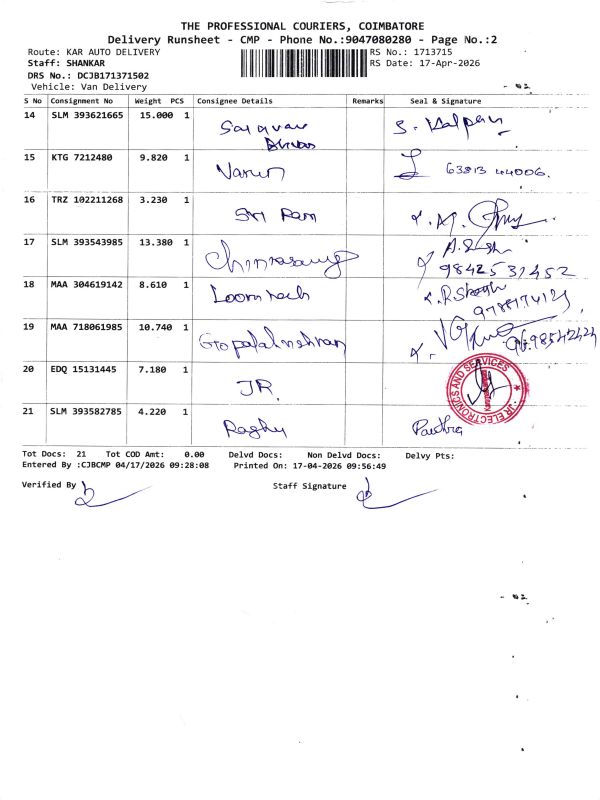 THE PROFESSIONAL COURIERS, COIMBATORE
Delivery Runsheet - CMP - Phone No.:9047080280 - Page No.:2
Route: KAR AUTO DELIVERY RS No.: 1713715
Staff: SHANKAR RS Date: 17-Apr-2026
DRS No.: DCJB171371502
Vehicle: Van Delivery
S No Consignment No Weight PCS Consignee Details Remarks Seal & Signature
14 SLM 393621665 15.000 1
15 KTG 7212480 9.820 1 Varun 63813 44006.
16 TRZ 102211268 3.230 1 Sri Ram
17 SLM 393543985 13.380 1 9842531452
18 MAA 304619142 8.610 1
19 MAA 718061985 10.740 1 Gopalakrishnan
20 EDQ 15131445 7.180 1 JR. JR ELECTRONICS AND SERVICES
21 SLM 393582785 4.220 1 Raghu
Tot Docs: 21 Tot COD Amt: 0.00 Delvd Docs: Non Delvd Docs: Delvy Pts:
Entered By :CJBCMP 04/17/2026 09:28:08 Printed On: 17-04-2026 09:56:49
Verified By Staff Signature